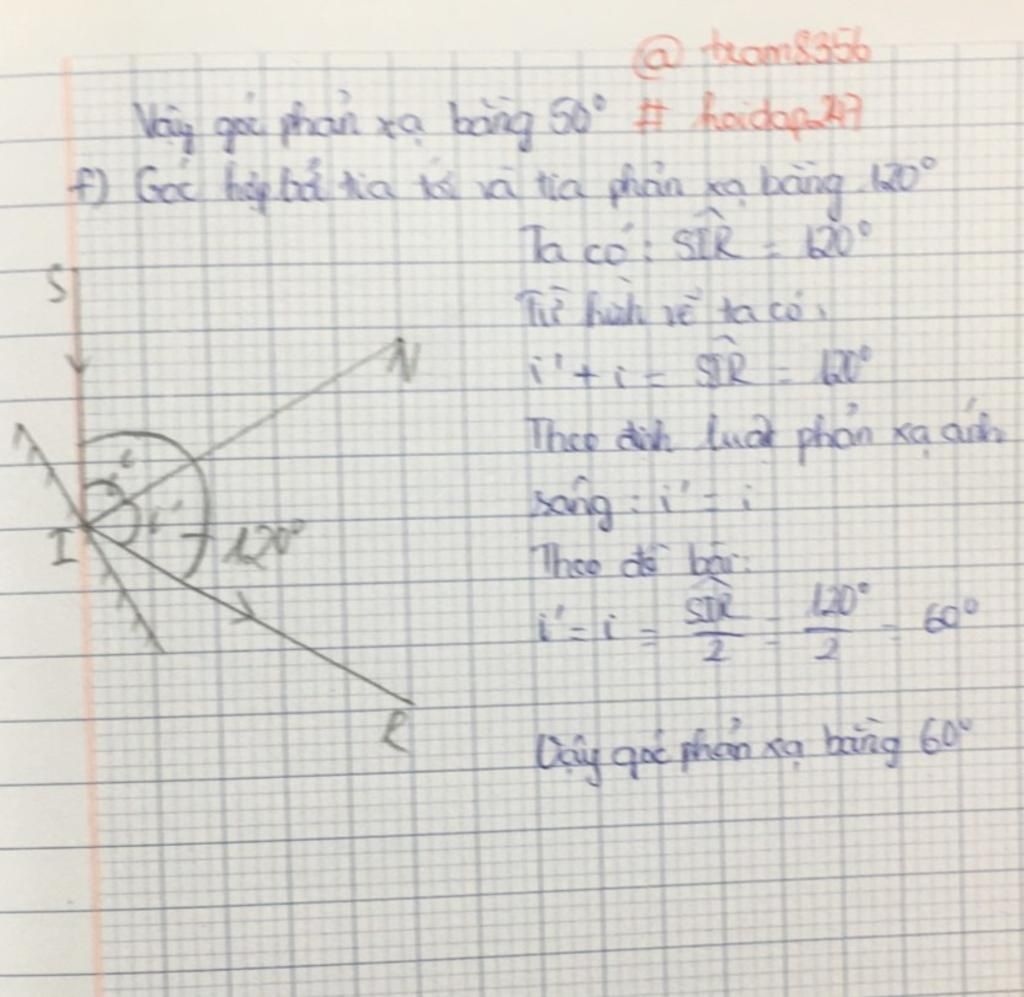 @ tram8356
Vậy góc phản xạ bằng 50° # hoidap247
f) Góc hợp bởi tia tới và tia phản xạ bằng 120°
Ta có: SIR = 120°
S
Từ hình vẽ ta có:
N
i' + i = SIR = 120°
Theo định luật phản xạ ánh
i
sáng: i' = i
i'
I
120°
Theo đề bài:
i' = i = SIR/2 = 120°/2 = 60°
R
Vậy góc phản xạ bằng 60°